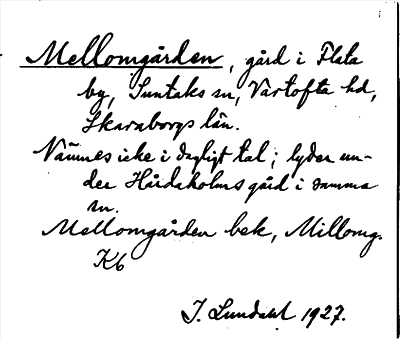 Mellomgården, gård i Flata
by, Suntaks sn, Vartofta hd,
Skaraborgs län.
Nämnes icke i dagligt tal; lyder un-
der Hårdaholms gård i samma
sn.
Mellomgården bek, Millomg.
K6
J. Lundahl 1927.